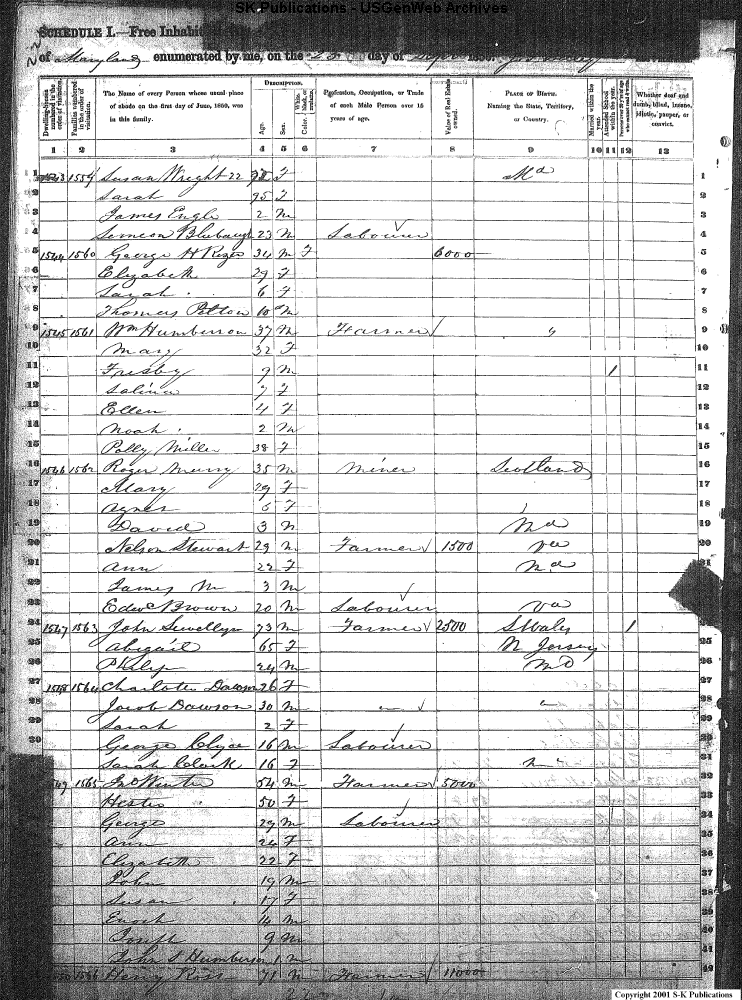 SK Publications - USGenWeb Archives
SCHEDULE I.—Free Inhabi
of Maryland enumerated by me, on the day of
Dwelling-houses numbered in the order of visitation.
Families numbered in the order of visitation.
The Name of every Person whose usual place of abode on the first day of June, 1850, was in this family.
DESCRIPTION.
Age.
Sex.
White, Color, black, or mulatto.
Profession, Occupation, or Trade of each Male Person over 15 years of age.
Value of Real Estate owned.
PLACE OF BIRTH. Naming the State, Territory, or Country.
Married within the year.
Attended School within the year.
Whether deaf and dumb, blind, insane, idiotic, pauper, or convict.
1 2 3 4 5 6 7 8 9 10 11 12 13
1 1559 Susan Wright 22 F Md 1
2 Sarah F 2
3 James Engle 2 M 3
4 Simeon Blubaugh 23 M Labourer 4
5 1544 1560 George H 34 M 6000 5
6 Elizabeth 29 F 6
7 Sarah 6 F 7
8 Thomas 10 M 8
9 1545 1561 Wm Humberson 37 M Farmer " 9
10 Mary 32 F 10
11 Fresby 9 M 1 11
12 Salina 7 F 12
13 Ellen 4 F 13
14 Noah 2 M 14
15 Polly Miller 38 F 15
16 1546 1562 Roger Murry 35 M Miner Scotland 16
17 Mary 29 F 17
18 Agnes 6 F 18
19 David 3 M Md 19
20 Nelson Stewart 29 M Farmer 1500 Va 20
Ann 22 F Md
James M 3 M
Edwd Brown 20 M Labourer Va
1547 1563 John Lewellyn 73 M Farmer 2500 S Wales 1
Abigail 65 F N Jersey 25
26 Philip 24 M Md 26
27 1548 1564 Charlotte Dawson 26 F 27
28 Jacob Dawson 30 M " " 28
29 Sarah 2 F 29
30 George Clyce 16 M Labourer
Sarah Clark 16 F "
1565 Jno Winter 54 M Farmer 5000
Hester 50 F
George 29 M Labourer 34
Ann 24 F 35
Elizabeth 22 F 36
John 19 M 37
Susan 17 F 38
Enoch 14 M
Joseph 9 M
John S Humberson 1 M 41
1566 Henry Ross 71 M Farmer 11000 42
Copyright 2001 S-K Publications